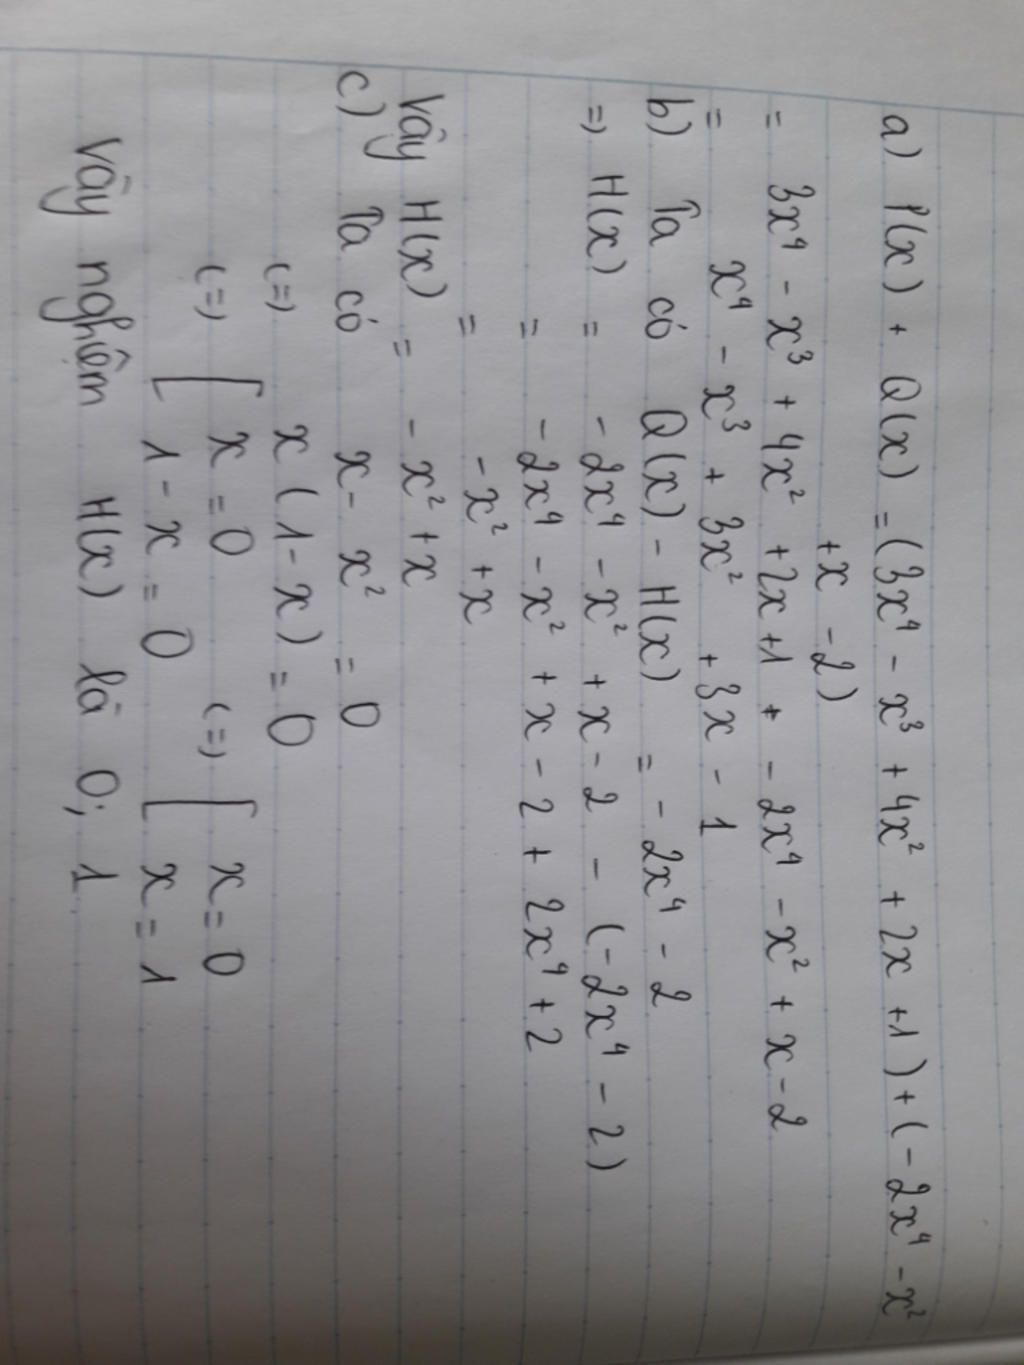 a) P(x) + Q(x) = (3x⁴ - x³ + 4x² + 2x +1) + (-2x⁴ - x²
+x -2)
= 3x⁴ - x³ + 4x² +2x+1 + -2x⁴ - x² + x - 2
= x⁴ - x³ + 3x² + 3x - 1
b) Ta có Q(x) - H(x) = -2x⁴ - 2
=> H(x) = -2x⁴ - x² + x - 2 - (-2x⁴ - 2)
= -2x⁴ - x² + x - 2 + 2x⁴ + 2
= -x² + x
Vậy H(x) = -x² + x
c) Ta có x - x² = 0
(=) x(1-x) = 0
(=) [ x = 0 (=) [ x = 0
1 - x = 0 x = 1
Vậy nghiệm H(x) là 0; 1